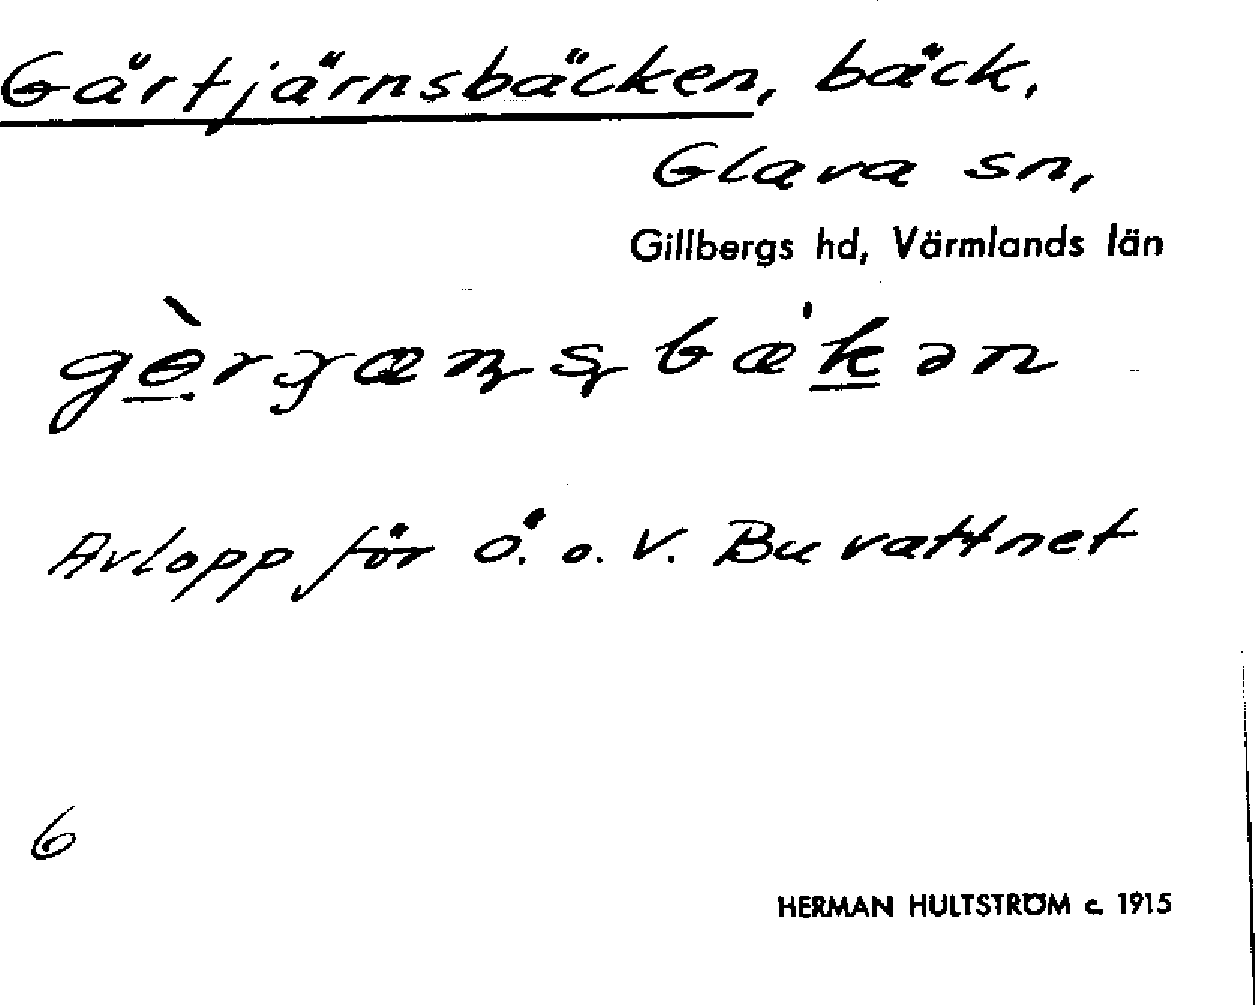 Gärtjärnsbäcken, bäck.
Glava sn,
Gillbergs hd, Värmlands län
Avlopp för Ö. o. V. Buvattnet
6
HERMAN HULTSTRÖM c. 1915